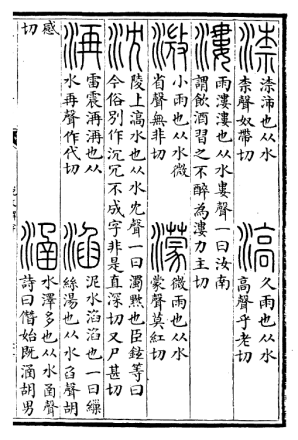 渿 渿沛也从水
柰聲奴帶切
滈 久雨也从水
高聲乎老切
漊 雨漊漊也从水婁聲一曰汝南
謂飲酒習之不醉為漊力主切
溦 小雨也从水微
省聲無非切
濛 微雨也从水
蒙聲莫紅切
沈 陵上高水也从水冘聲一曰濁黕也臣鉉等曰
今俗別作沉冗不成字非是直深切又尸甚切
洅 雷震洅洅也从
水再聲作代切
淊 泥水淊淊也一曰繅
絲湯也从水臽聲胡
感
切
涵 水澤多也从水圅聲
詩曰僭始既涵胡男